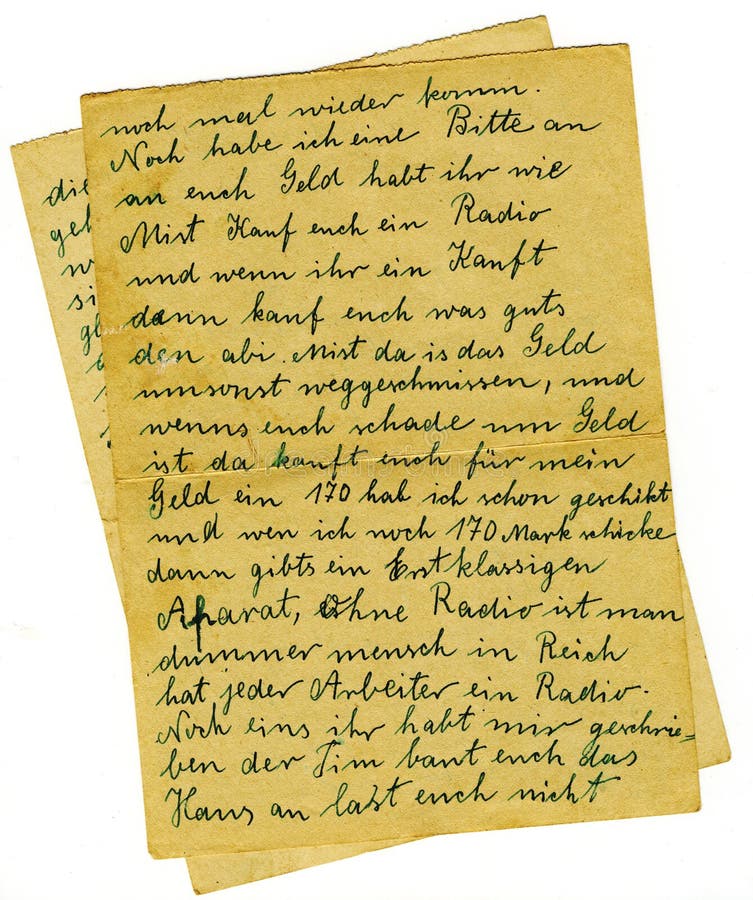 noch mal wieder komm.
Noch habe ich eine Bitte an
an euch Geld habt ihr wie
Mist Kauf euch ein Radio
und wenn ihr ein Kauft
dann kauf euch was guts
den abi. Mist da is das Geld
umsonst weggeschmissen, und
wenns euch schade um Geld
ist da kauft euch für mein
Geld ein 170 hab ich schon geschikt
und wen ich noch 170 Mark schicke
dann gibts ein Erstklassigen
Aparat, Ohne Radio ist man
dummer mensch in Reich
hat jeder Arbeiter ein Radio.
Noch eins ihr habt mir geschrie=
ben der Tim baut euch das
Haus an laßt euch nicht
die